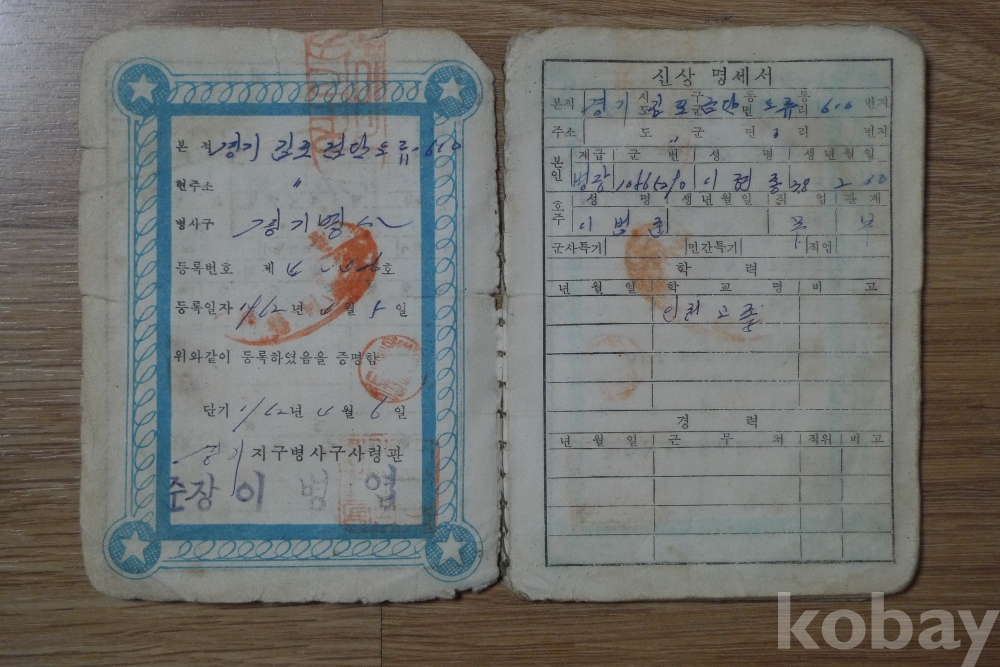 본 적 경기 김포 검단 오류 610
현주소 〃
병사구 경기병사
등록번호 제 호
등록일자 1962 년 월 5 일
위와같이 등록하였음을 증명함
단기 1962 년 월 6 일
경기 지구병사구사령관
준장 이 범 엽
신상 명세서
본적 경기 시도 김포 구군 검단 동면 오류 통리 610 번지
주소 도 〃 군 면 리 번지
본인 계급 군 번 성 명 생년월일
병장 이 종 38 2
호주 성 명 생년월일 직 업 관 계
이 범 부
군사특기 민간특기 직업
학 력
년 월 일 학 교 명 비 고
인천고졸
경 력
년 월 일 근 무 처 직위 비 고
kobay